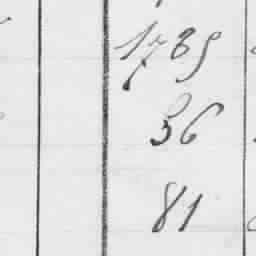 1789
36
81